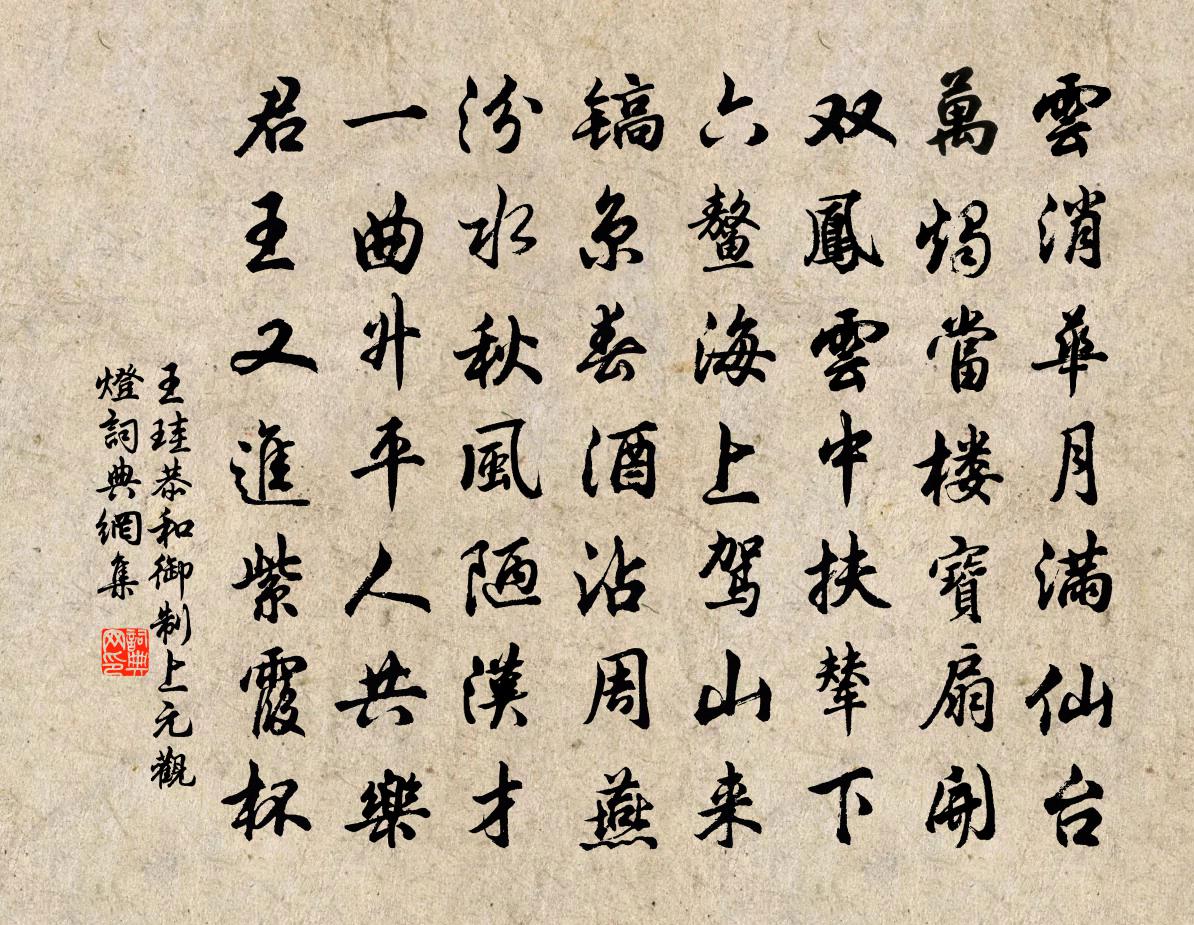 雲消華月満仙台
萬燭當楼寶扇開
双鳳雲中扶輦下
六鰲海上駕山来
镐京春酒沾周燕
汾水秋風陋漢才
一曲升平人共樂
君王又進紫霞杯
王珪恭和御制上元觀
燈詞典網集
詞典网印